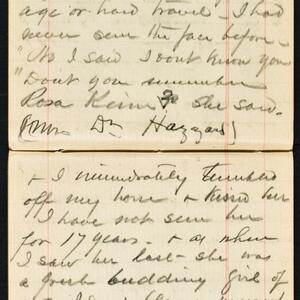 age or hard travel - I had
never seen the face before -
"No I said I dont know you
"Dont you remember
Rosa Kinn? She said.
[Mrs Dr Hazzard]
+ I immediately tumbled
off my horse + kissed her
I have not seen her
for 17 years - + as when
I saw her last - she was
a fresh budding girl of